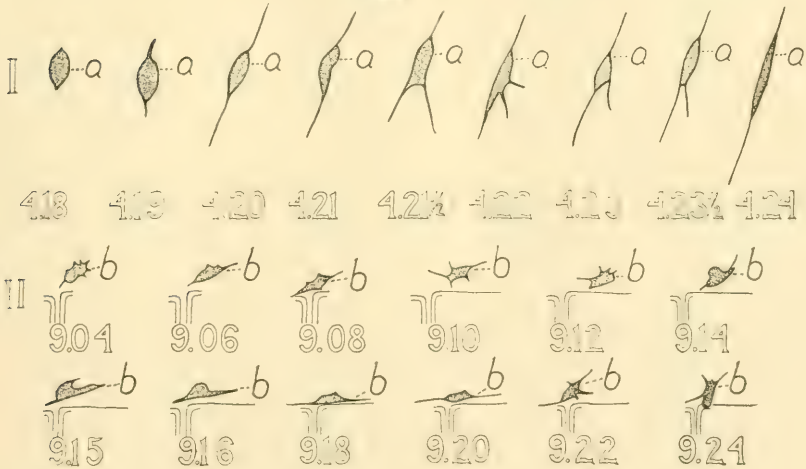 I a a a a a a a a a
4.18 4.19 4.20 4.21 4.21½ 4.22 4.23½ 4.24
II b b b b b b
9.04 9.06 9.08 9.10 9.12 9.14
b b b b b b
9.15 9.16 9.18 9.20 9.22 9.24